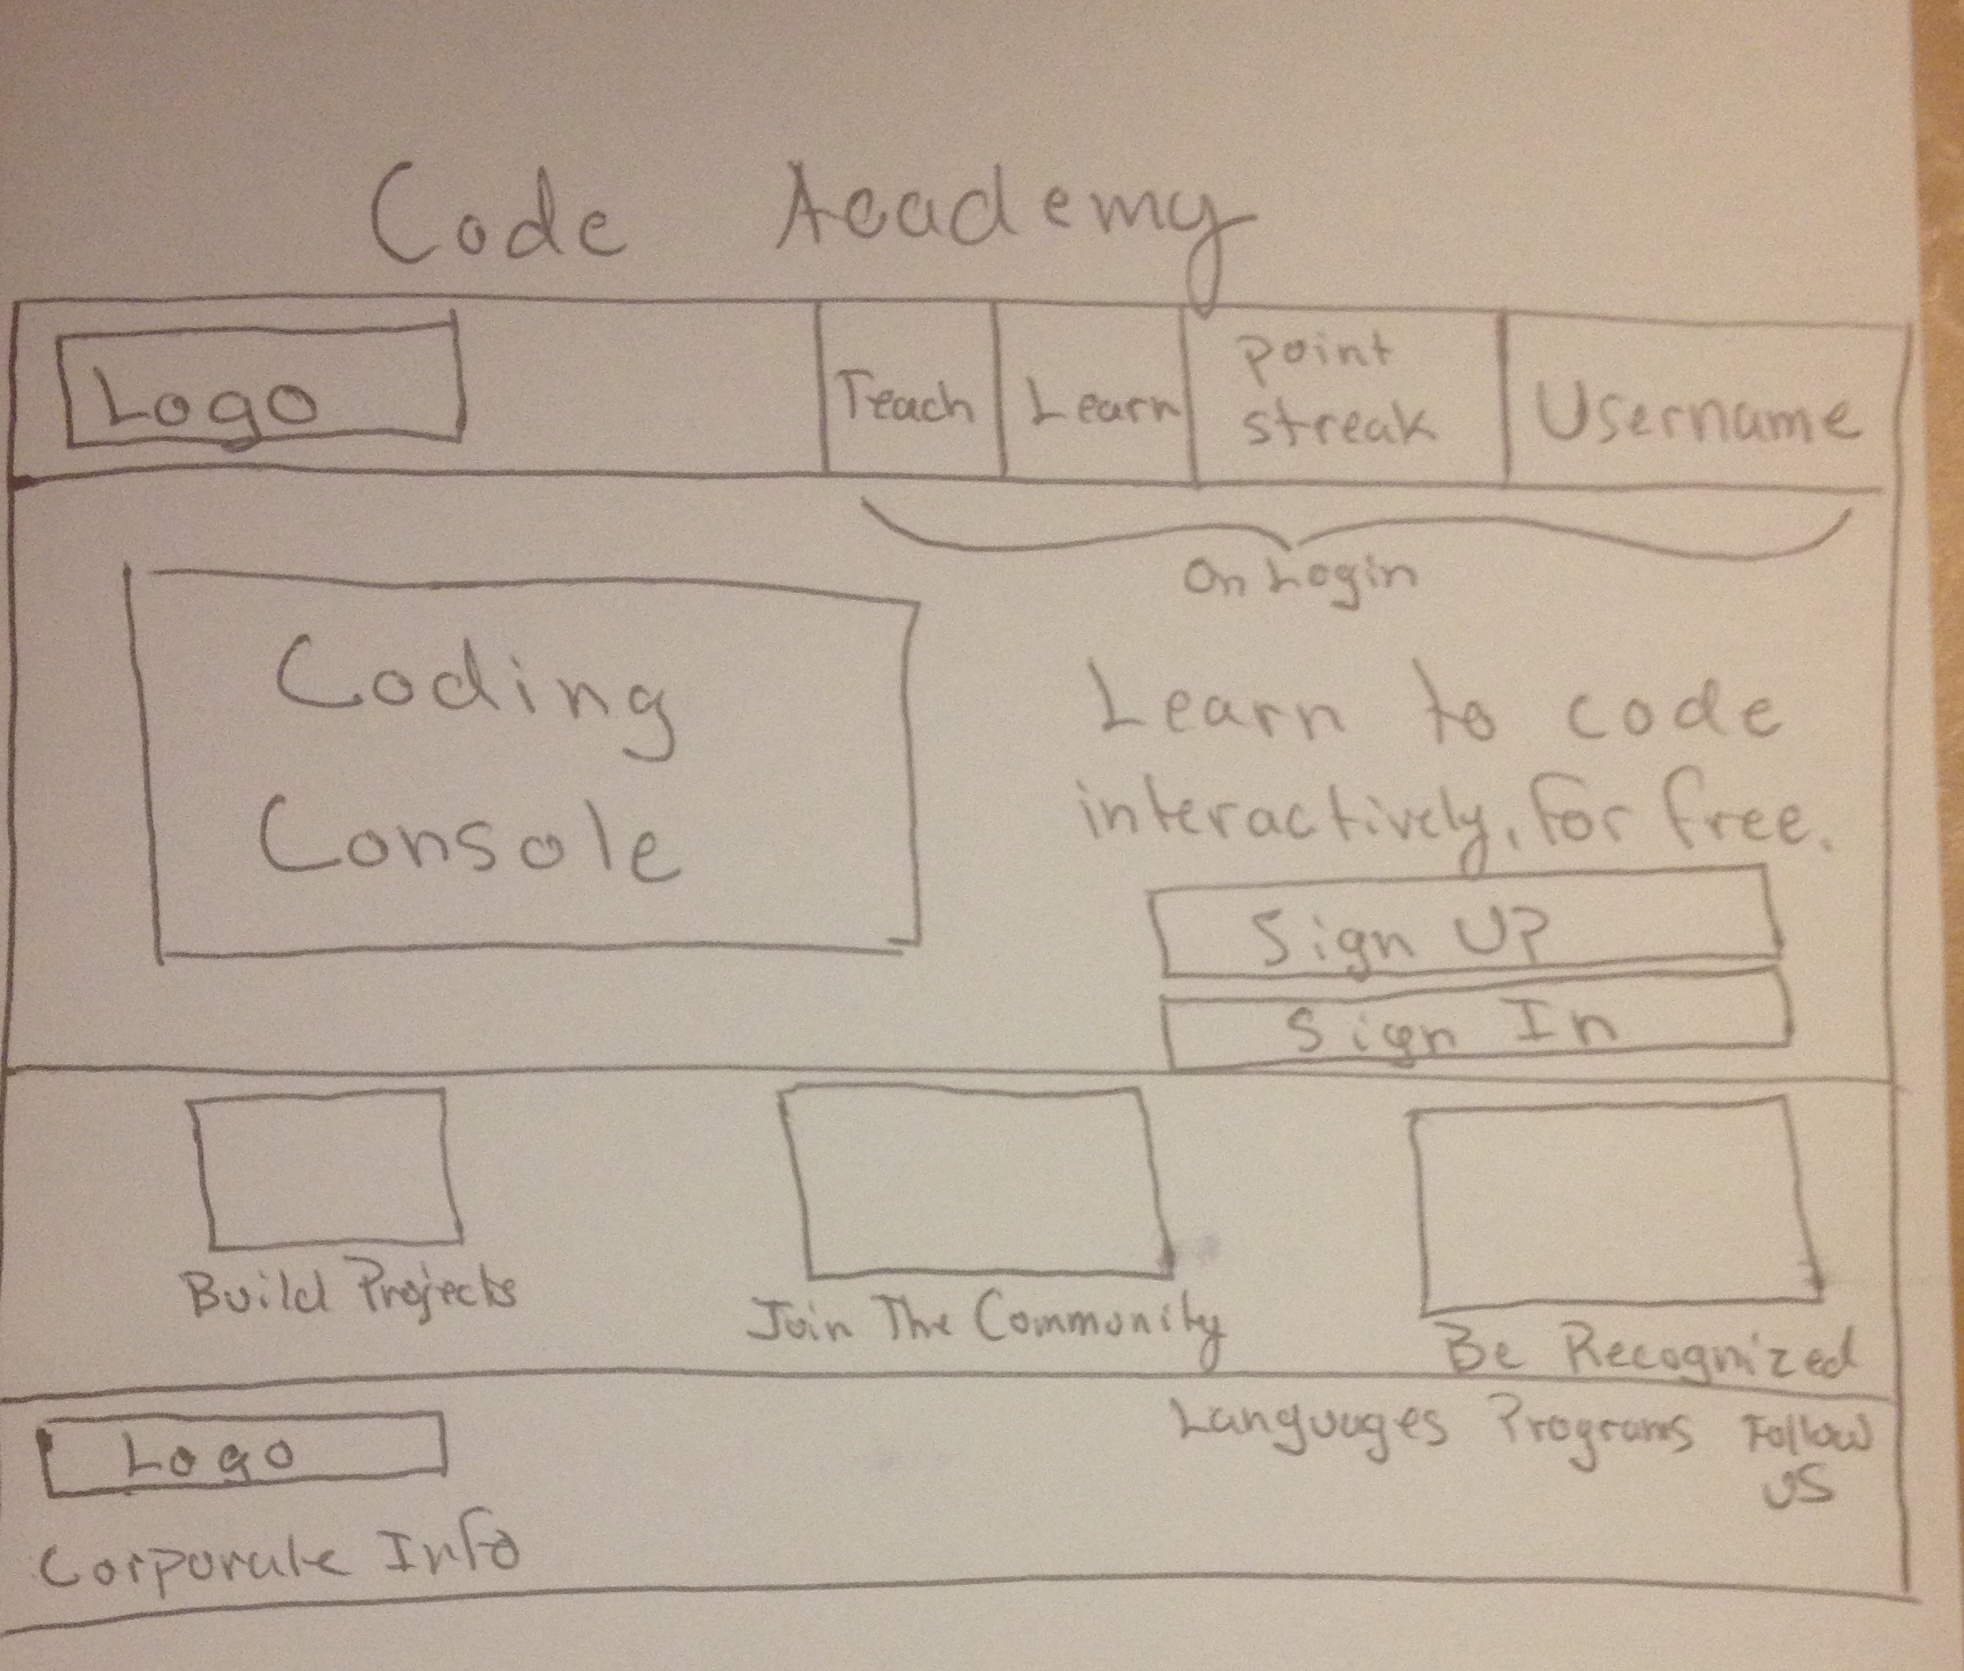 Code Academy
Logo
Teach
Learn
point
streak
Username
On Login
Coding
Console
Learn to code
interactively, for free.
Sign UP
Sign In
Build Projects
Join The Community
Be Recognized
Logo
Corporate Info
Languages
Programs
Follow
US